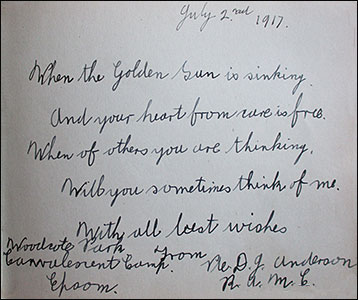 July 2.nd 1917.
When the Golden Sun is sinking.
And your heart from care is free.
When of others you are thinking.
Will you sometimes think of me.
With all best wishes
from
Woodcote Park
Convalescent Camp.
Epsom.
D. J. Anderson
R. A. M. C.